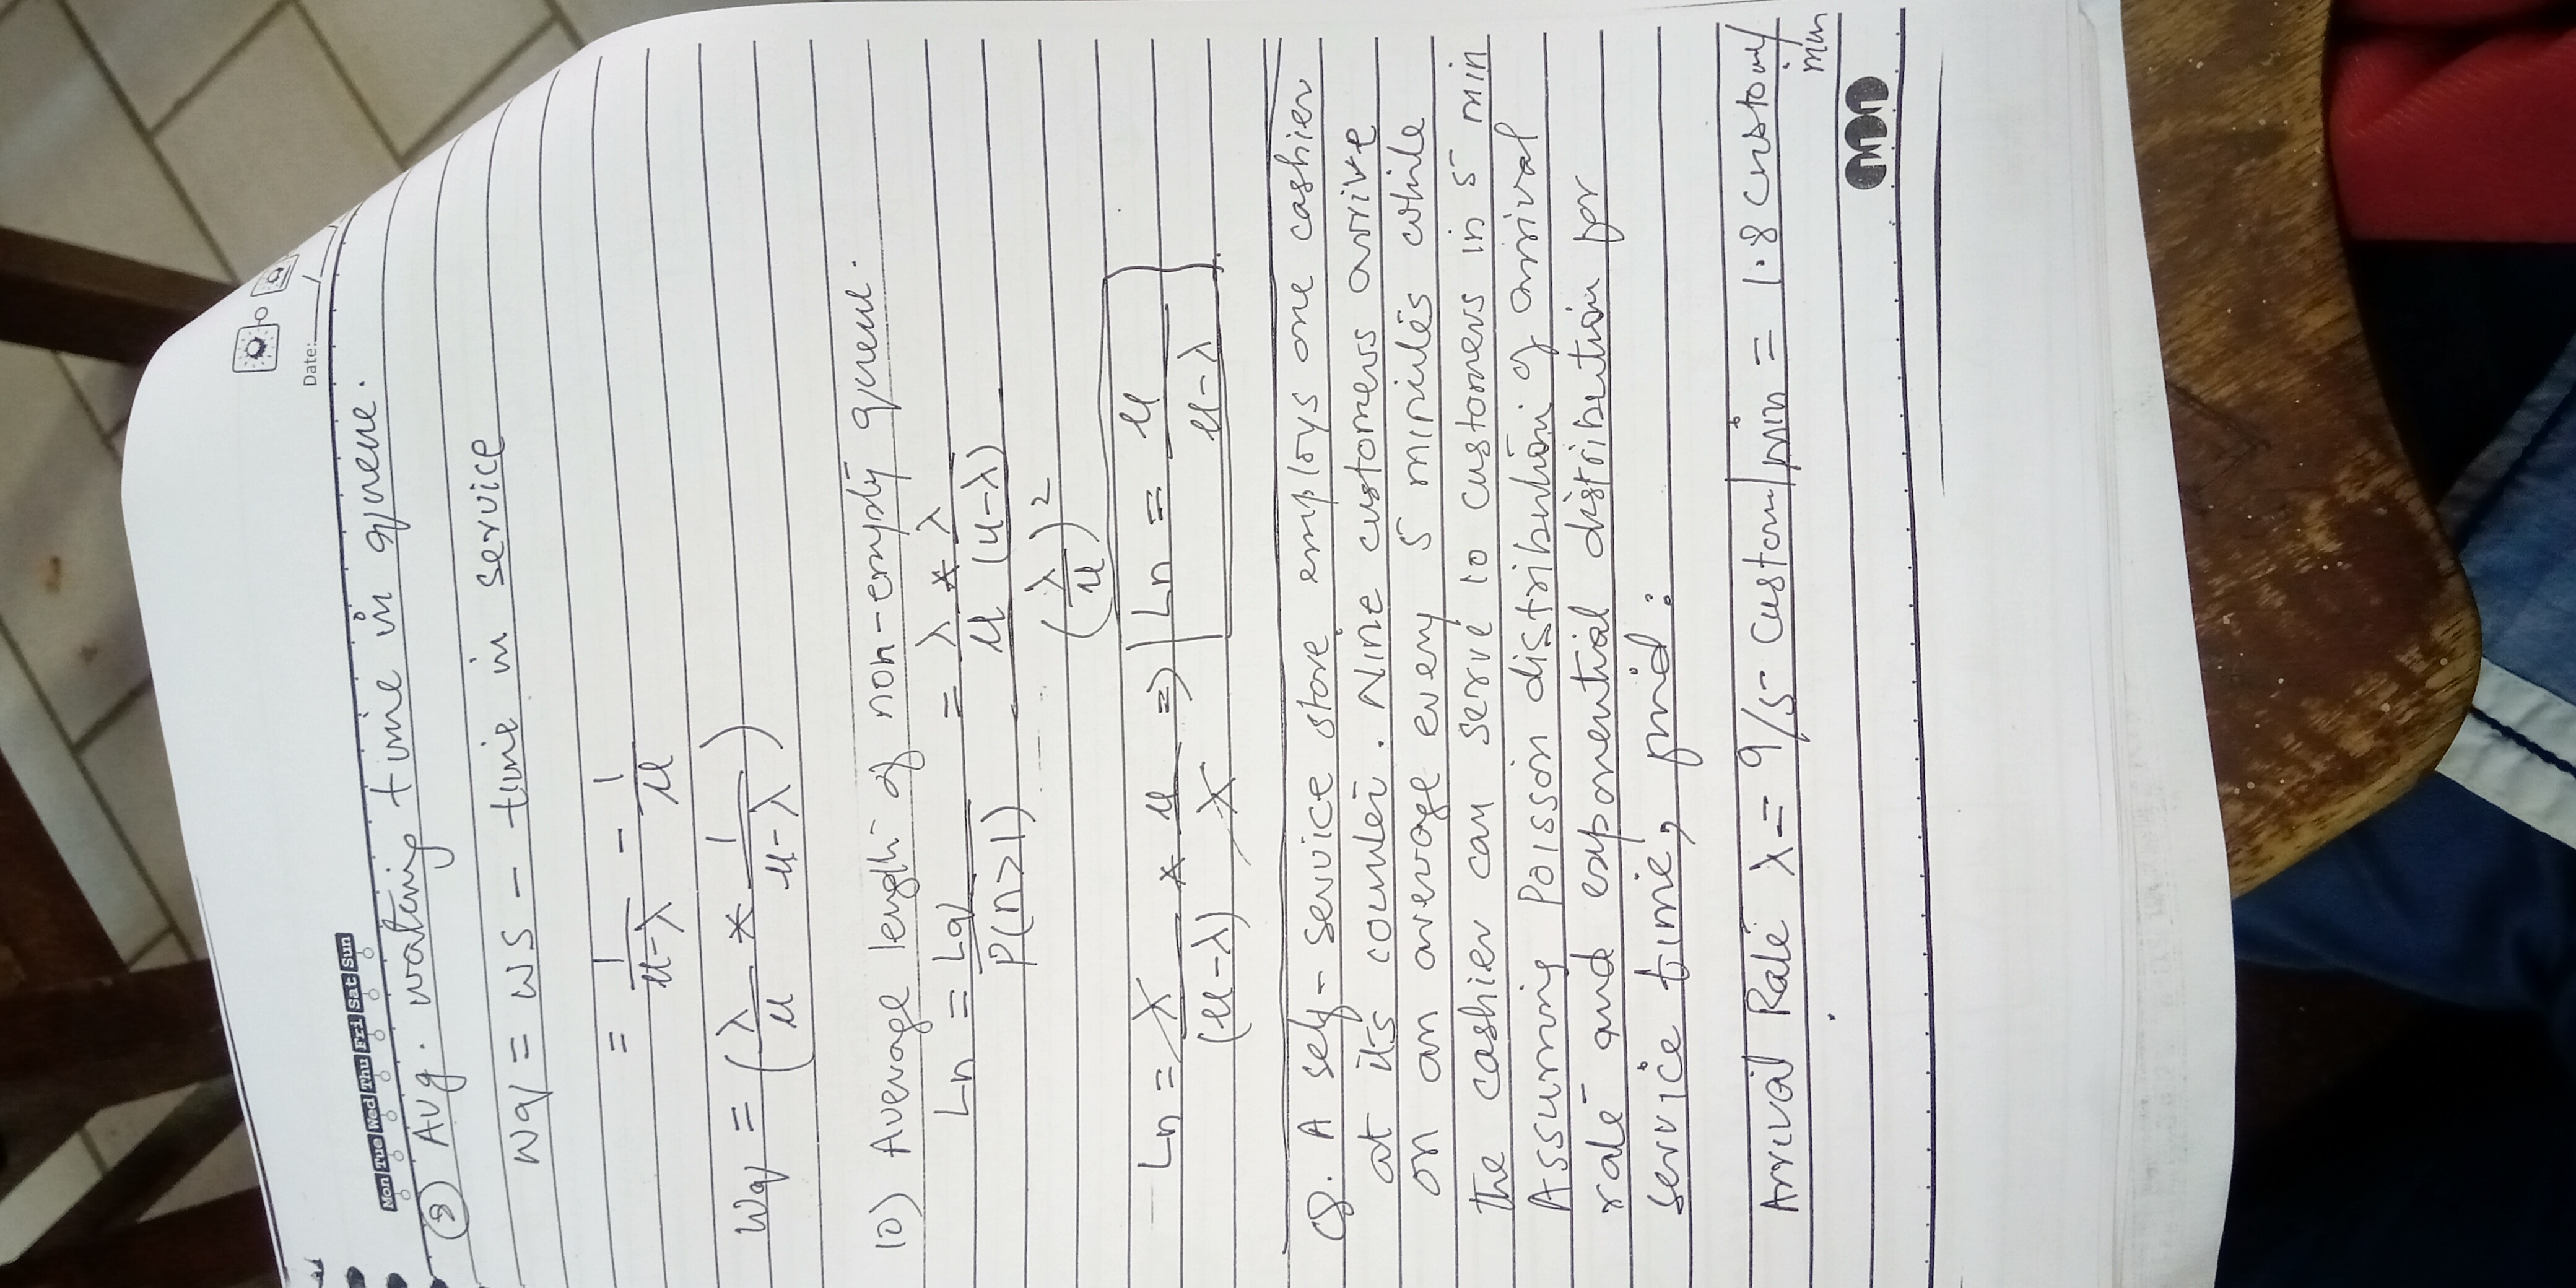 Mon Tue Wed Thu Fri Sat Sun
Date:
9 Avg. waiting time in queue.
Wq = ws - time in service
= 1/(μ-λ) - 1/μ
Wq = (λ/μ * 1/(μ-λ))
10) Average length of non-empty queue.
Ln = Lq/P(n>1) = λ*λ/μ(μ-λ)
(λ/μ)²
Ln = λ/(μ-λ) * μ/λ => Ln = μ/(μ-λ)
Q. A self-service store employs one cashier
at its counter. Nine customers arrive
on an average every 5 minutes while
the cashier can serve 10 customers in 5 min
Assuming Poisson distribution of arrival
rate and exponential distribution for
service time, find:
Arrival Rate λ = 9/5 custom/min = 1.8 custom/
min